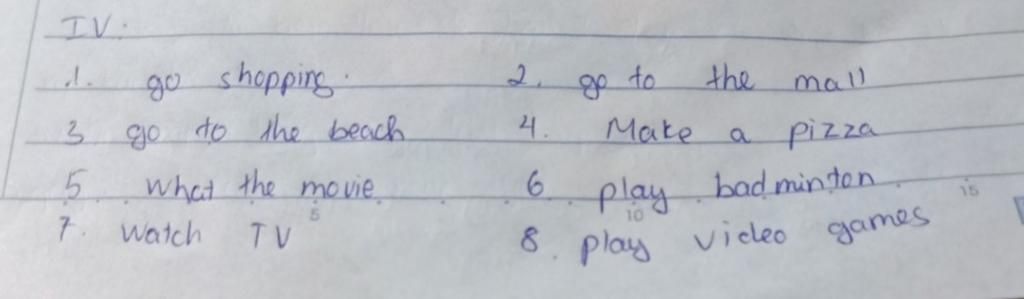 IV.
1. go shopping. 2. go to the mall
3 go to the beach 4. Make a pizza
5 what the movie 6 play badminton.
7. watch TV 8. play video games
5 10 15